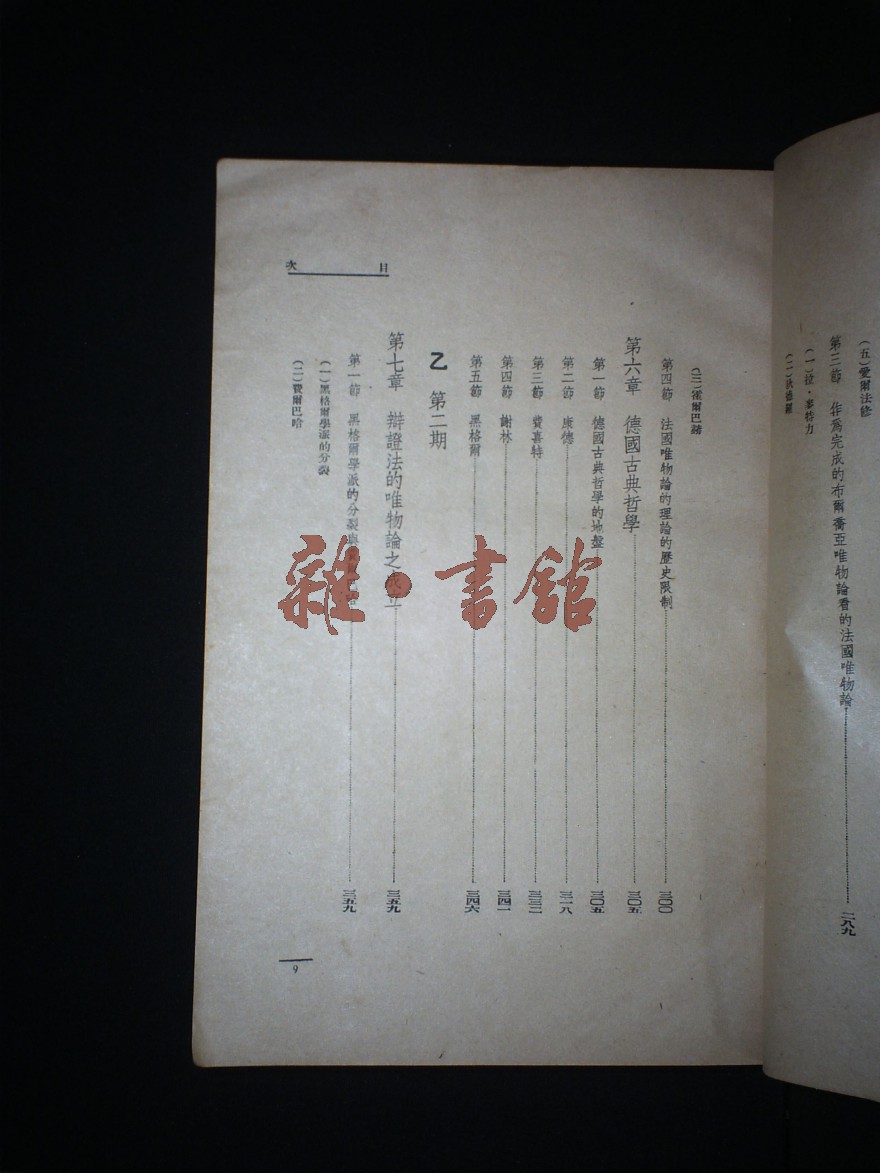 (五)愛爾法修
第三節 作為完成的布爾喬亞唯物論看的法國唯物論 二八九
(一)拉·麥特力
(二)狄德羅
目次
(三)霍爾巴赫
第四節 法國唯物論的理論的歷史限制 三〇〇
第六章 德國古典哲學 三〇五
第一節 德國古典哲學的地盤 三〇五
第二節 康德 三一八
第三節 費喜特 三三二
第四節 謝林 三四一
第五節 黑格爾 三四六
乙 第二期
第七章 辯證法的唯物論之成立 三五九
第一節 黑格爾學派的分裂與費爾巴哈 三五九
(一)黑格爾學派的分裂
(二)費爾巴哈
9
雜·書館